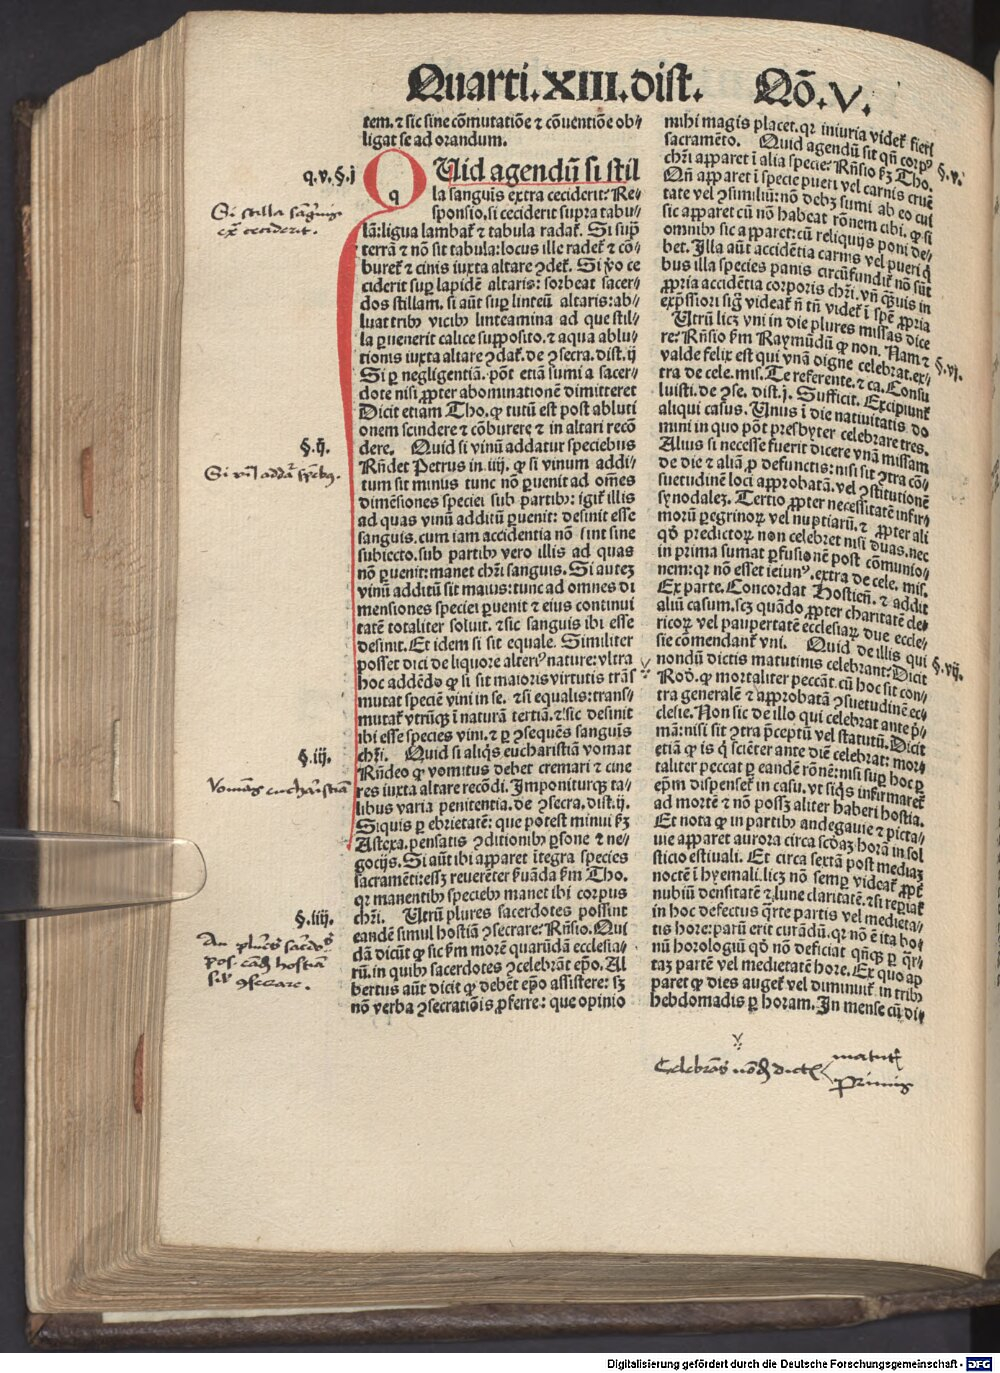 Quarti.XIII.dist. Qō.V.
tem.⁊ sic sine cōmutatiōe ⁊ cōuentiōe ob⸗
ligat se ad orandum.
q.v.§.j
QUid agendū si stil
q
la sanguis extra ceciderit: Re⸗
sponsio.si ceciderit supra tabu⸗
Si stilla sāguis
ex̄ ceciderit.
lā:ligua lambat᷑ ⁊ tabula radat᷑. Si suꝑ
terrā ⁊ nō sit tabula:locus ille radet᷑ ⁊ cō⸗
buret᷑ ⁊ cinis iuxta altare ꝯdet᷑. Si ꝟo ce
ciderit suꝑ lapidē altaris: sorbeat sacer⸗
dos stillam. si aūt suꝑ linteū altaris:ab⸗
luat tribꝰ vicibꝰ linteamina ad que stil⸗
la ꝑuenerit calice supposito.⁊ aqua ablu⸗
tionis iuxta altare ꝯdat᷑.de ꝯsecra.dist.ij
Si ꝑ negligentiā. pōt etiā sumi a sacer⸗
dote nisi ꝓpter abominationē dimitteret
Dicit etiam Tho.ꝙ tutū est post abluti
onem scindere ⁊ cōburere ⁊ in altari recō
dere. Quid si vinū addatur speciebus
§.ij.
Si vinū addat᷑ spēbꝰ.
Rn̄det Petrus in.iiij. ꝙ si vinum addi⸗
tum sit minus tunc nō ꝑuenit ad om̄es
dimēsiones speciei sub partibꝰ: igit᷑ illis
ad quas vinū additū ꝑuenit: desinit esse
sanguis.cum iam accidentia nō sint sine
subiecto.sub partibꝰ vero illis ad quas
nō ꝑuenit:manet chr̄i sanguis. Si autez
vinū additū sit maius:tunc ad omnes di
mensiones speciei ꝑuenit ⁊ eius continui
tatē totaliter soluit. ⁊ sic sanguis ibi esse
desinit. Et idem si sit equale. Similiter
posset dici de liquore alteriꝰ nature:vltra
hoc addēdo ꝙ si sit maioris virtutis trās
mutat speciē vini in se. ⁊ si equalis:trans⸗
mutat᷑ vtrūqꝫ ī naturā tertiā.⁊ sic desinit
ibi esse species vini.⁊ ꝑ ꝯsequēs sanguis
chr̄i. Quid si aliq̄s eucharistiā vomat
§.iij.
Vomēs eucharistiā
Rn̄deo ꝙ vomitus debet cremari ⁊ cine
res iuxta altare recōdi. Imponiturqꝫ ta⸗
libus varia penitentia.de ꝯsecra.dist.ij.
Siquis ꝑ ebrietatē: que potest minui ẜm
Astexa.pensatis ꝯditionibꝰ ꝑsone ⁊ ne⸗
gocijs. Si aūt ibi apparet ītegra species
sacramēti:essꝫ reuerēter ẜuāda ẜm Tho.
qꝛ manentibꝰ speciebꝰ manet ibi corpus
chr̄i. Utrū plures sacerdotes possint
§.iiij.
An plures sacerdˢ
pos. eādē hostiā
sil' ꝯsecrare.
eandē simul hostiā ꝯsecrare: Rn̄sio. Qui
dā dicūt ꝙ sic ẜm morē quarūdā ecclesia⸗
rū.in quibꝰ sacerdotes ꝯcelebrāt ep̄o. Al
bertus aūt dicit ꝙ debēt ep̄o assistere: sꝫ
nō verba ꝯsecratiōis ꝓferre: que opinio
mihi magis placet.qꝛ iniuria videt᷑ fieri
sacramēto. Quid agendū sit qn̄ corpꝰ
§.v.
chr̄i apparet ī alia specie: Rn̄sio ẜꝫ Tho.
Qn̄ apparet ī specie pueri vel carnis crue
tate vel ꝯsimiliū:nō debꝫ sumi ab eo cui
sic apparet cū nō habeat rōnem cibi. ꝙ si
omnibꝰ sic apparet:cū reliquijs poni de⸗
bet. Illa aūt accidētia carnis vel pueri q̄
bus illa species panis circūfundit᷑ nō sūt
ꝓpria accidētia corporis chr̄i. vn̄ q̄ꝫuis in
exp̄ssiori sig̊ videat᷑ n̄ tn̄ videt᷑ ī spē ꝓpria
Utrū licꝫ vni in die plures missas dice
re: Rn̄sio ẜm Raymūdū ꝙ non. Nam ⁊
§.vj.
valde felix est qui vnā digne celebrat.ex⸗
tra de cele.mis. Te referente.⁊ ca. Consu
luisti.de ꝯse.dist.j. Sufficit. Excipiunt᷑
aliqui casus. Unus ī die natiuitatis do
mini in quo pōt presbyter celebrare tres.
Alius si necesse fuerit dicere vnā missam
de die ⁊ aliā ꝓ defunctis: nisi sit ꝯtra cō⸗
suetudinē loci approbatā.vel ꝯstitutionē
synodalez. Tertio ꝓpter necessitatē infir⸗
morū ꝑegrinoꝝ vel nuptiarū.⁊ ꝓpter ali
qd̄ predictoꝝ non celebret nisi duas.nec
in prima sumat ꝑfusionē post cōmunio⸗
nem:qꝛ nō esset ieiunꝰ.extra de cele. mis.
Ex parte. Concordat Hosticn̄. ⁊ addit
aliū casum.scꝫ quādo ꝓpter charitatē de⸗
ricoꝝ vel paupertatē ecclesiaꝝ due eccle⸗
sie cōmendant᷑ vni. Quid de illis qui
§.vij.
nondū dictis matutinis celebrant: Dicit
Rod̄. ꝙ mortaliter peccāt.cū hoc sit con⸗
tra generalē ⁊ approbatā ꝯsuetudinē ec⸗
clesie. Non sic de illo qui celebrat ante p̄i⸗
mā:nisi sit ꝯtra p̄ceptū vel statutū. Dicit
etiā ꝙ is q̄ sciēter ante diē celebrat: mor⸗
taliter peccat ꝑ eandē rōnē:nisi suꝑ hoc ꝑ
ep̄m dispenset᷑ in casu. vt siq̄s infirmaret᷑
ad mortē ⁊ nō possꝫ aliter haberi hostia.
Et nota ꝙ in partibꝰ andegauie ⁊ picta⸗
uie apparet aurora circa scd̄az horā in sol
sticio estiuali. Et circa sextā post mediaꝫ
noctē ī hyemali.licꝫ nō semꝑ videat᷑ ꝓpt᷑
nubiū densitatē ⁊ lune claritatē.⁊ si reꝑiat᷑
in hoc defectus q̄rte partis vel medieta⸗
tis hore:parū erit curādū.qꝛ nō ē ita bo⸗
nū horologiū qd̄ nō deficiat qn̄qꝫ ꝑ q̄r⸗
taꝫ partē vel medietatē hore. Ex quo ap
paret ꝙ dies auget᷑ vel diminuit᷑ in tribꝰ
hebdomadis ꝑ horam. In mense cū di⸗
Celebrās nōdū dictis
matut̄
Primis